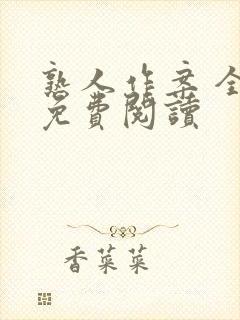 熟人作案全
免費閱讀
香菜菜